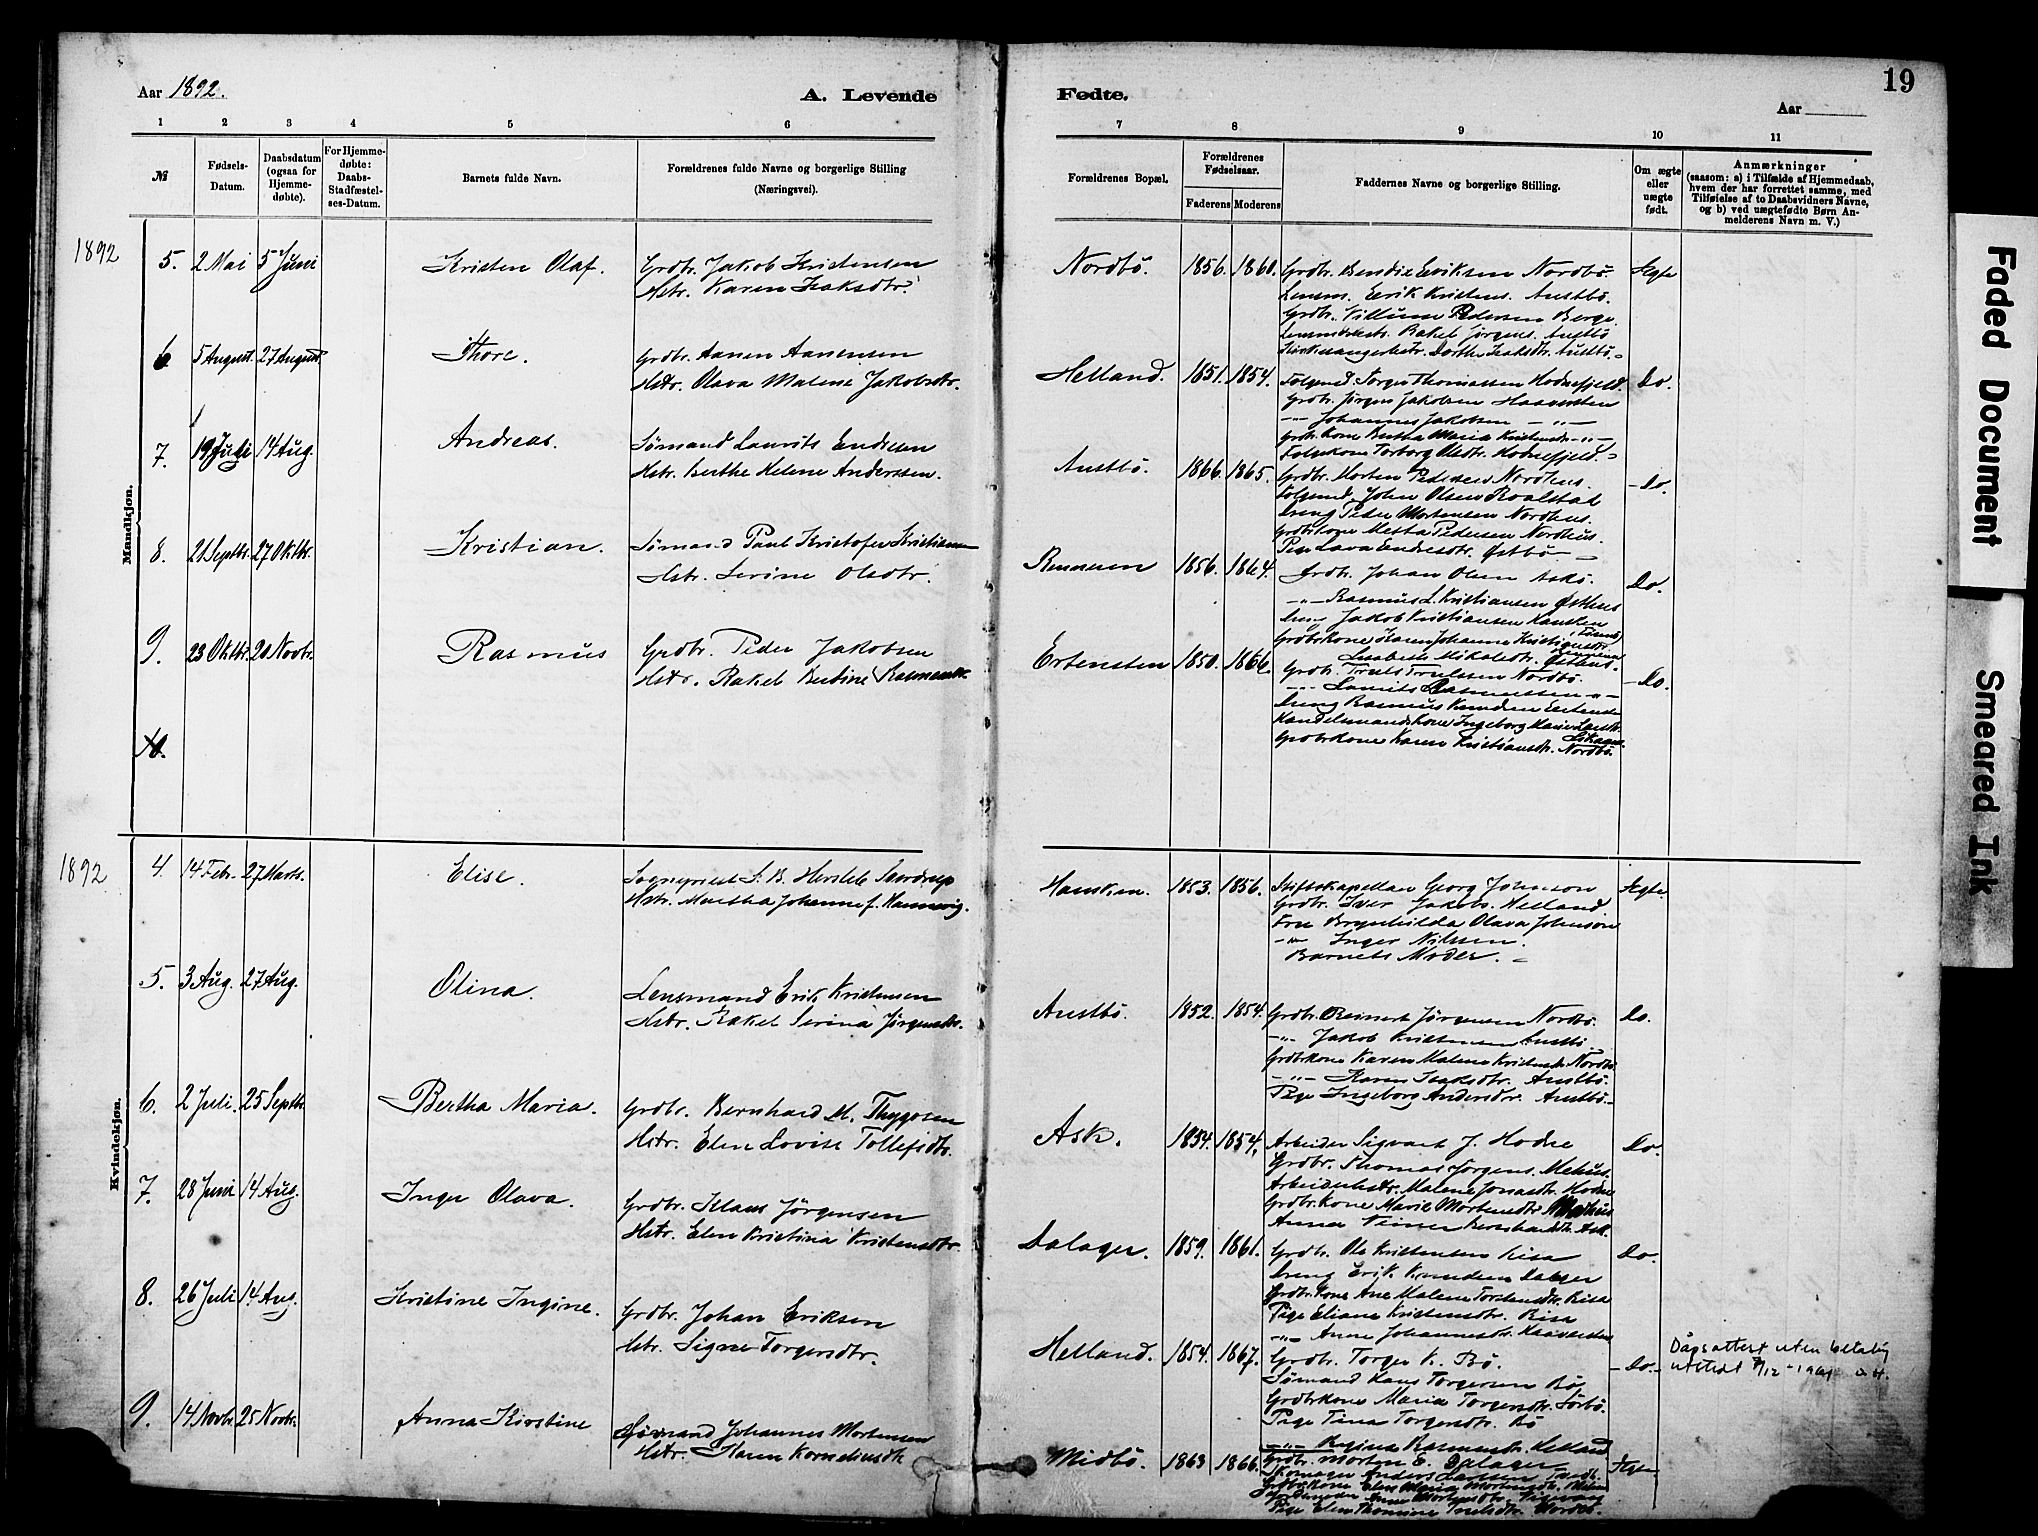 Aar 1892.
A. Levende
Fødte.
19
Aar
1 2 3 4 5 6 7 8 9 10 11
№
Fødsels-Datum.
Daabsdatum (ogsaa for Hjemme-døbte).
For Hjemme-døbte: Daabs-Stadfæstel-ses-Datum.
Barnets fulde Navn.
Forældrenes fulde Navne og borgerlige Stilling (Næringsvei).
Forældrenes Bopæl.
Forældrenes Fødselsaar.
Faderens Moderens
Faddernes Navne og borgerlige Stilling.
Om ægte eller uægte født.
Anmærkninger
(saasom: a) i Tilfælde af Hjemmedaab, hvem der har forrettet samme, med Tilføielse af to Daabsvidners Navne, og b) ved uægtefødte Børn An-melderens Navn m. V.)
Mandkjøn.
1892
5. 2 Mai 5 Juni Kristen Olaf. Grdbr. Jakob Kristensen
Hstr. Karen Isaksdtr.
Nordbö. 1856. 1860. Grdbr. Bendix Eriksen Nordbö. Ægte
Lensm. Eerik Kristens. Austbö.
Grdbr. Villum Pedersen Berge.
Rakel Jørgens. Austbö
6 5 August 27 August Thore. Grdbr. Aanen Aanensen
Hstr. Olava Malene Jakobsdtr.
Helland. 1851. 1854. Folgmd. Torger Thomassen Hodnefjeld. Do.
Grdbr. Jørgen Jakobsen Haavarsten
-"- Johannes Jakobsen -"-
Grdbr. Kone Bertha Maria -"-
Folgekone Torborg Olsdtr. Hodnefjeld.
7. 19 Juli 14 Aug. Andreas. Sømand Laurits Endresen
Hstr. Berthe Helene Andersen.
Austbö. 1866. 1865. Grdbr. Morten Pedersen Nordhus. Do.
Folgmd. John Olsen Roalstad
Dreng Peder Mortensen Nordhus.
Grdbrkone Metta Pedersen Nordhus.
Pige Lava Endresdtr. Østbö
8. 21 Septbr. 27 Oktbr. Kristian. Sømand Paul Kristofer Kristiansen
Hstr. Serine Olsdtr.
Rennesen 1856. 1864. Grdbr. Johan Olsen Askö. Do.
-"- Rasmus L. Kristiansen Østhus
Dreng Jakob Kristiansen Hausken
Grdbrkone Karen Johanne
Lisabeth Mikalsdtr. Østhus.
9. 23 Oktbr. 20 Novbr. Rasmus Grdbr. Peder Jakobsen
Hstr. Rakel Bertine Rasmusdtr.
Ertensten 1850. 1866. Grdbr. Truls Trulssen Nordbö. Do.
-"- Laurits Rasmussen -"-
Dreng Rasmus Knudsen Ertensten
Handelsmandskone Ingeborg Marie
Grdbrkone Karen Kristiansdtr. Nordbö.
10.
Kvindekjøn.
1892
4. 14 Febr. 27 Marts. Elise. Sogneprest S. B. Hersleb Swerdrup
Hstr. Martha Johanne f. Hannevig.
Hausken. 1853. 1856. Stiftskapellan Georg Johnson Ægte
Grdbr. Iver Jakobs. Helland
Fru Brynhilda Olava Johnson
-"- Inger Nilssen.
Barnets Moder.
5. 3 Aug. 27 Aug. Olina. Lensmand Erik Kristensen
Hstr. Rakel Serina Jørgensdtr.
Austbö. 1852. 1854. Grdbr. Reinert Jørgensen Nordbö. Do.
-"- Jakob Kristensen Austbö
Grdbrkone Karen Malene Kristensdtr. Nordbö.
-"- Karen Isaksdtr. Austbö.
Pige Ingeborg Andersdtr. Austbö.
6. 2 Juli. 25 Septbr. Bertha Maria. Grdbr. Bernhard M. Thygesen
Hstr. Elen Lovise Tollefsdtr.
Ask. 1854. 1854. Arbeider Sigvart J. Hodne Do.
Grdbr. Thomas Jørgens. Mehus.
Arbeiderhstr. Malene Jonasdtr. Hodne
Grdbr. Kone Marie Mortensdtr. Mehus
Anna Bernhardsdtr. Ask.
7. 28 Juni 14 Aug. Inger Olava. Grdbr. Klaus Jørgensen
Hstr. Elen Kristina Kristensdtr.
Dalager. 1859. 1861. Grdbr. Ole Kristensen Risa Do.
Dreng Erik Knudsen Dalager
Grdbr. Kone Ane Malene Torstensdtr. Risa
Pige Eliane Kristensdtr. Risa
-"- Anne Johannesdtr. Haavarsten
8. 26 Juli 14 Aug. Kristine Ingine. Grdbr. Johan Eriksen
Hstr. Signe Torgersdtr.
Helland. 1854. 1867. Grdbr. Torger K. Bö. Do. Dåpsattest uten betaling
Sømand Hans Torgersen Bö utstedt 7/12-1961
Grdbrkone Maria Torgersdtr. Sörbö.
Pige Tina Torgersdtr. Bö
-"- Regina Rasmusdtr. Helland
9. 14 Novbr. 25 Novbr. Anna Kirstine Sømand Johannes Mortensen
Hstr. Karen Kornelius dtr.
Midbö. 1863 1866. Grdbr. Morten E. Dalager Ægte
Anders Larssen
Grdbrkone Elen Maria
Pige Elen Thomine
Faded Document
Smeared Ink